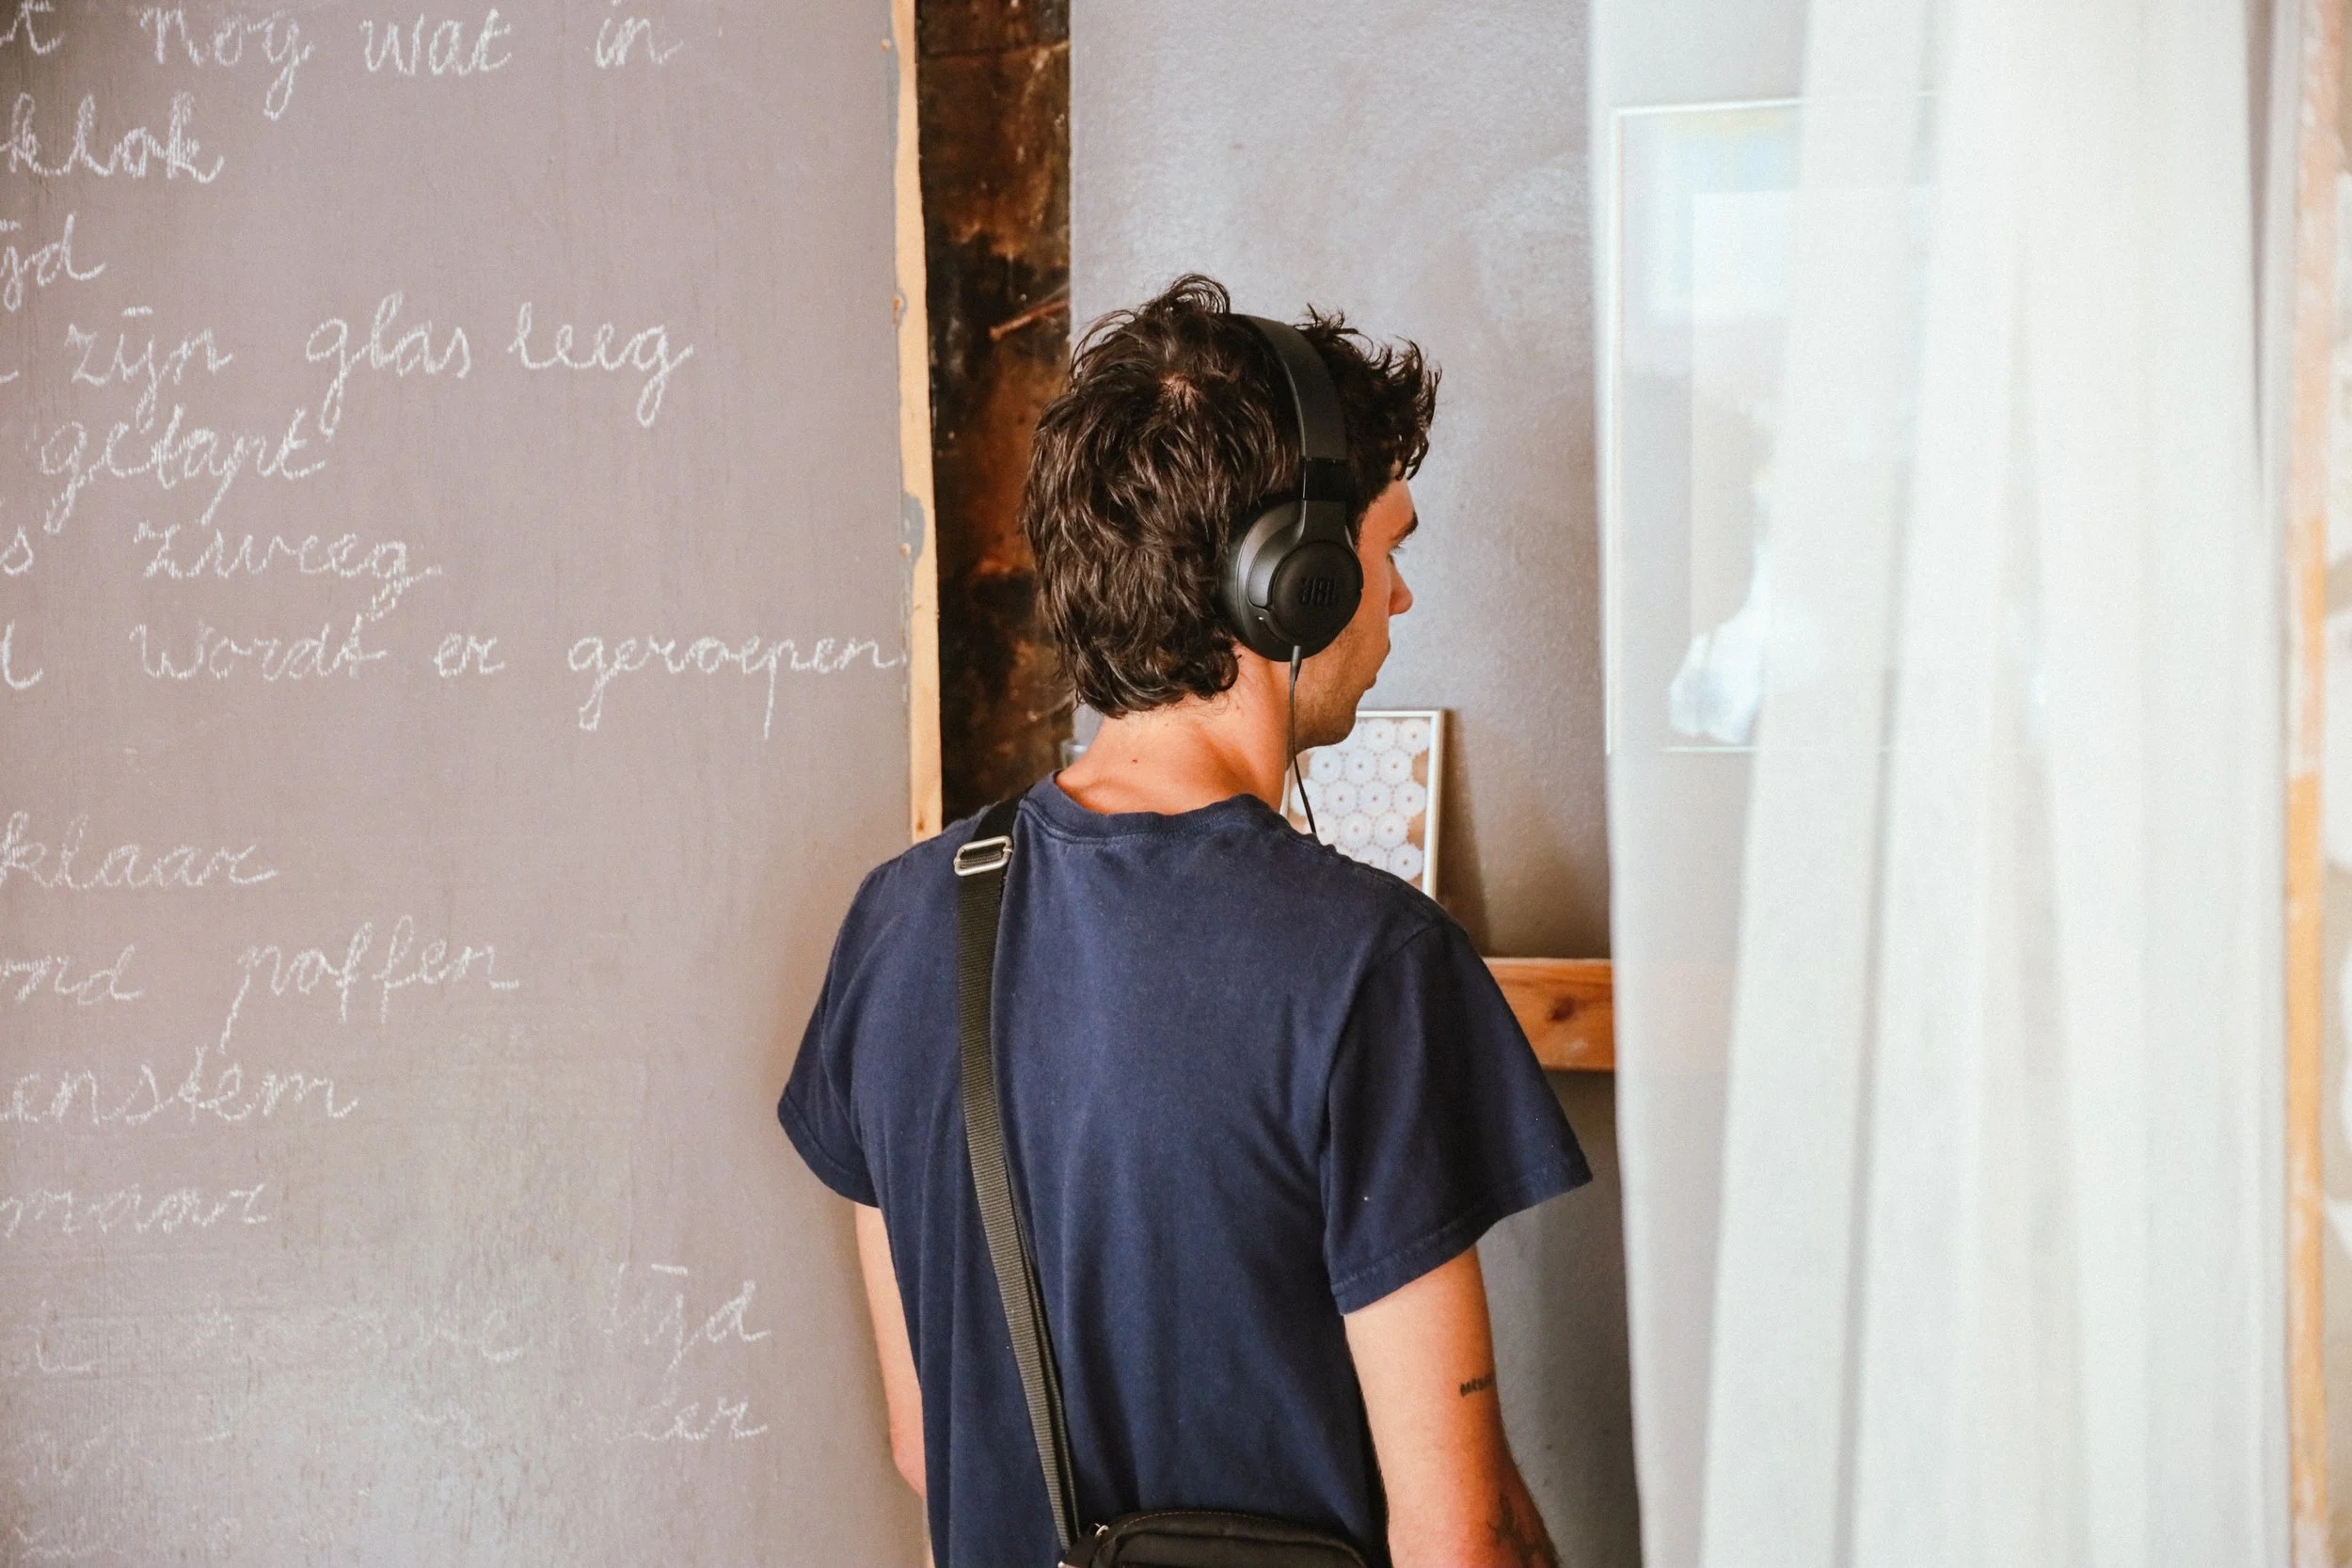 t nog wat in
klok
ijd
zijn glas leeg
getapt
s zweeg
d wordt er geroepen
klaar
ond poffen
enstem
maar
tijd
er
JBL